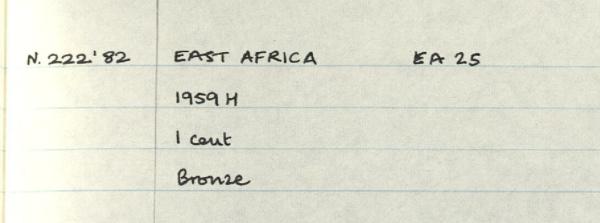 N. 222'82 EAST AFRICA EA 25
1959 H
1 cent
Bronze